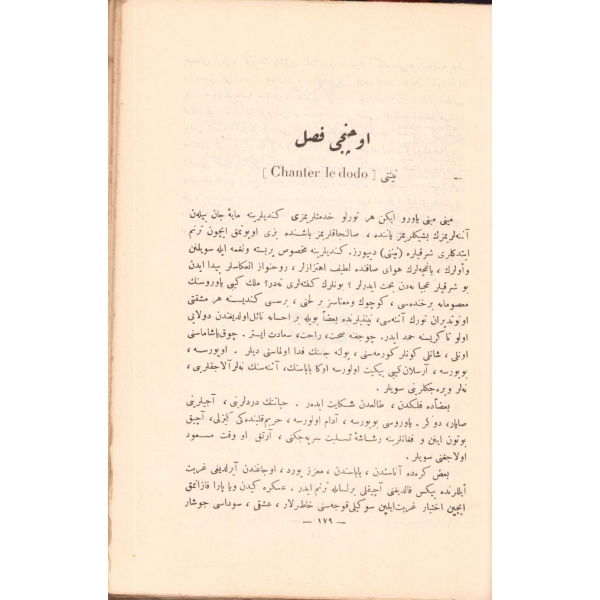 اوچنجی فصل
نینی [ Chanter le dodo ]
مینی مینی یاورو ایکن هر تورلو خدمتلریمزی کندیلرینه مایۀ جان بیلەن
آننەلریمزك بشیکلریمز یاننده ، صالنجاقلریمز باشنده بزی اویوتمق ایچون ترنم
ایتدکلری شرقیلره (نینی) دییورز. کندیلرینه مخصوص بر بسته ونغمه ایله سویلنن
واولرك ، باغچەلرك هوای صافنده لطیف اهتزازلر ، روحنواز انعکاسلر پیدا ایدن
بو شرقیلر عجبا نەدن بحث ایدرلر ؟ بونلرك گفتەلری نەدر؟ ملك کبی یاوروسنك
معصومانه بر خندەسی ، کوچوك ومعناسز بر لحنی ، بر سسی کندیسنه هر مشقتی
اونوتدیران تورك آننەسی، نینیلرنده بعضاً بویله بر احسانه نائل اولدیغندن دولایی
اولو تاکریسنه حمد ایدر. چوجغنه صحت، راحت، سعادت ایستر . چوق یاشاماسنی
اونلی ، شانلی کونلر کورمەسنی ، یولنه جاننك فدا اولماسنی دیلر . اویورسه ،
بویورسه ، آرسلان کبی ییکیت اولورسه اوکا باباسنك، آننەسنك نەلر آلاجقلرینی ،
نەلر ویرەجکلرینی سویلر .
بعضاًده فلکدن ، طالعدن شکایت ایدەر . حیاتنك دردلرینی ، آجیلرینی
صایار، دوکر . یاوروسی بویورسه ، آدام اولورسه ، حریم قلبندەکی کیزلی، آچیق
بوتون این و فغانلرینه رشاشۀ تسلیت سرپەجکنی ، آرتق او وقت مسعود
اولاجغنی سویلر .
بعض کرەده آناسندن ، باباسندن ، معزز یورد ، اوجاغندن آیرلدیغنی غربت
ایللرنده بیکس قالدیغنی آجیقلی بر لسانله ترنم ایدر . عسکره کیدن ویا پارا قازانمق
ایچین اختیار غربت ایلین سوکیلی قوجەسنی خاطرلار ، عشقی ، سوداسی جوشار
— ۱۷۹ —